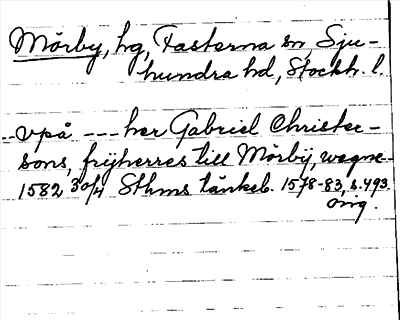 Mörby, hg, Fasterna sn, Sju-
hundra hd, Stockh. l.
.. vpå --- her Gabriel Christer-
sons, frijherres till Mörbÿ, wegne-
1582 30/4 Sthms tänkeb. 1578-83, s. 493.
orig.